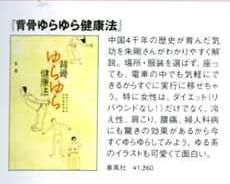 『背骨ゆらゆら健康法』
背骨
ゆらゆら
健康法
中国4千年の歴史が育んだ気
功を朱剛さんがわかりやすく解
説。場所・服装を選ばず、座っ
ても、電車の中でも気軽にで
きるからすぐに実行に移せちゃ
う。特に女性は、ダイエット(リ
バウンドなし!)だけでなく、冷
え性、肩こり、腰痛、婦人科病
にも驚きの効果があるから今
すぐゆらゆらしてみよう。ゆる系
のイラストも可愛くて面白い。
春風社 ¥1,260